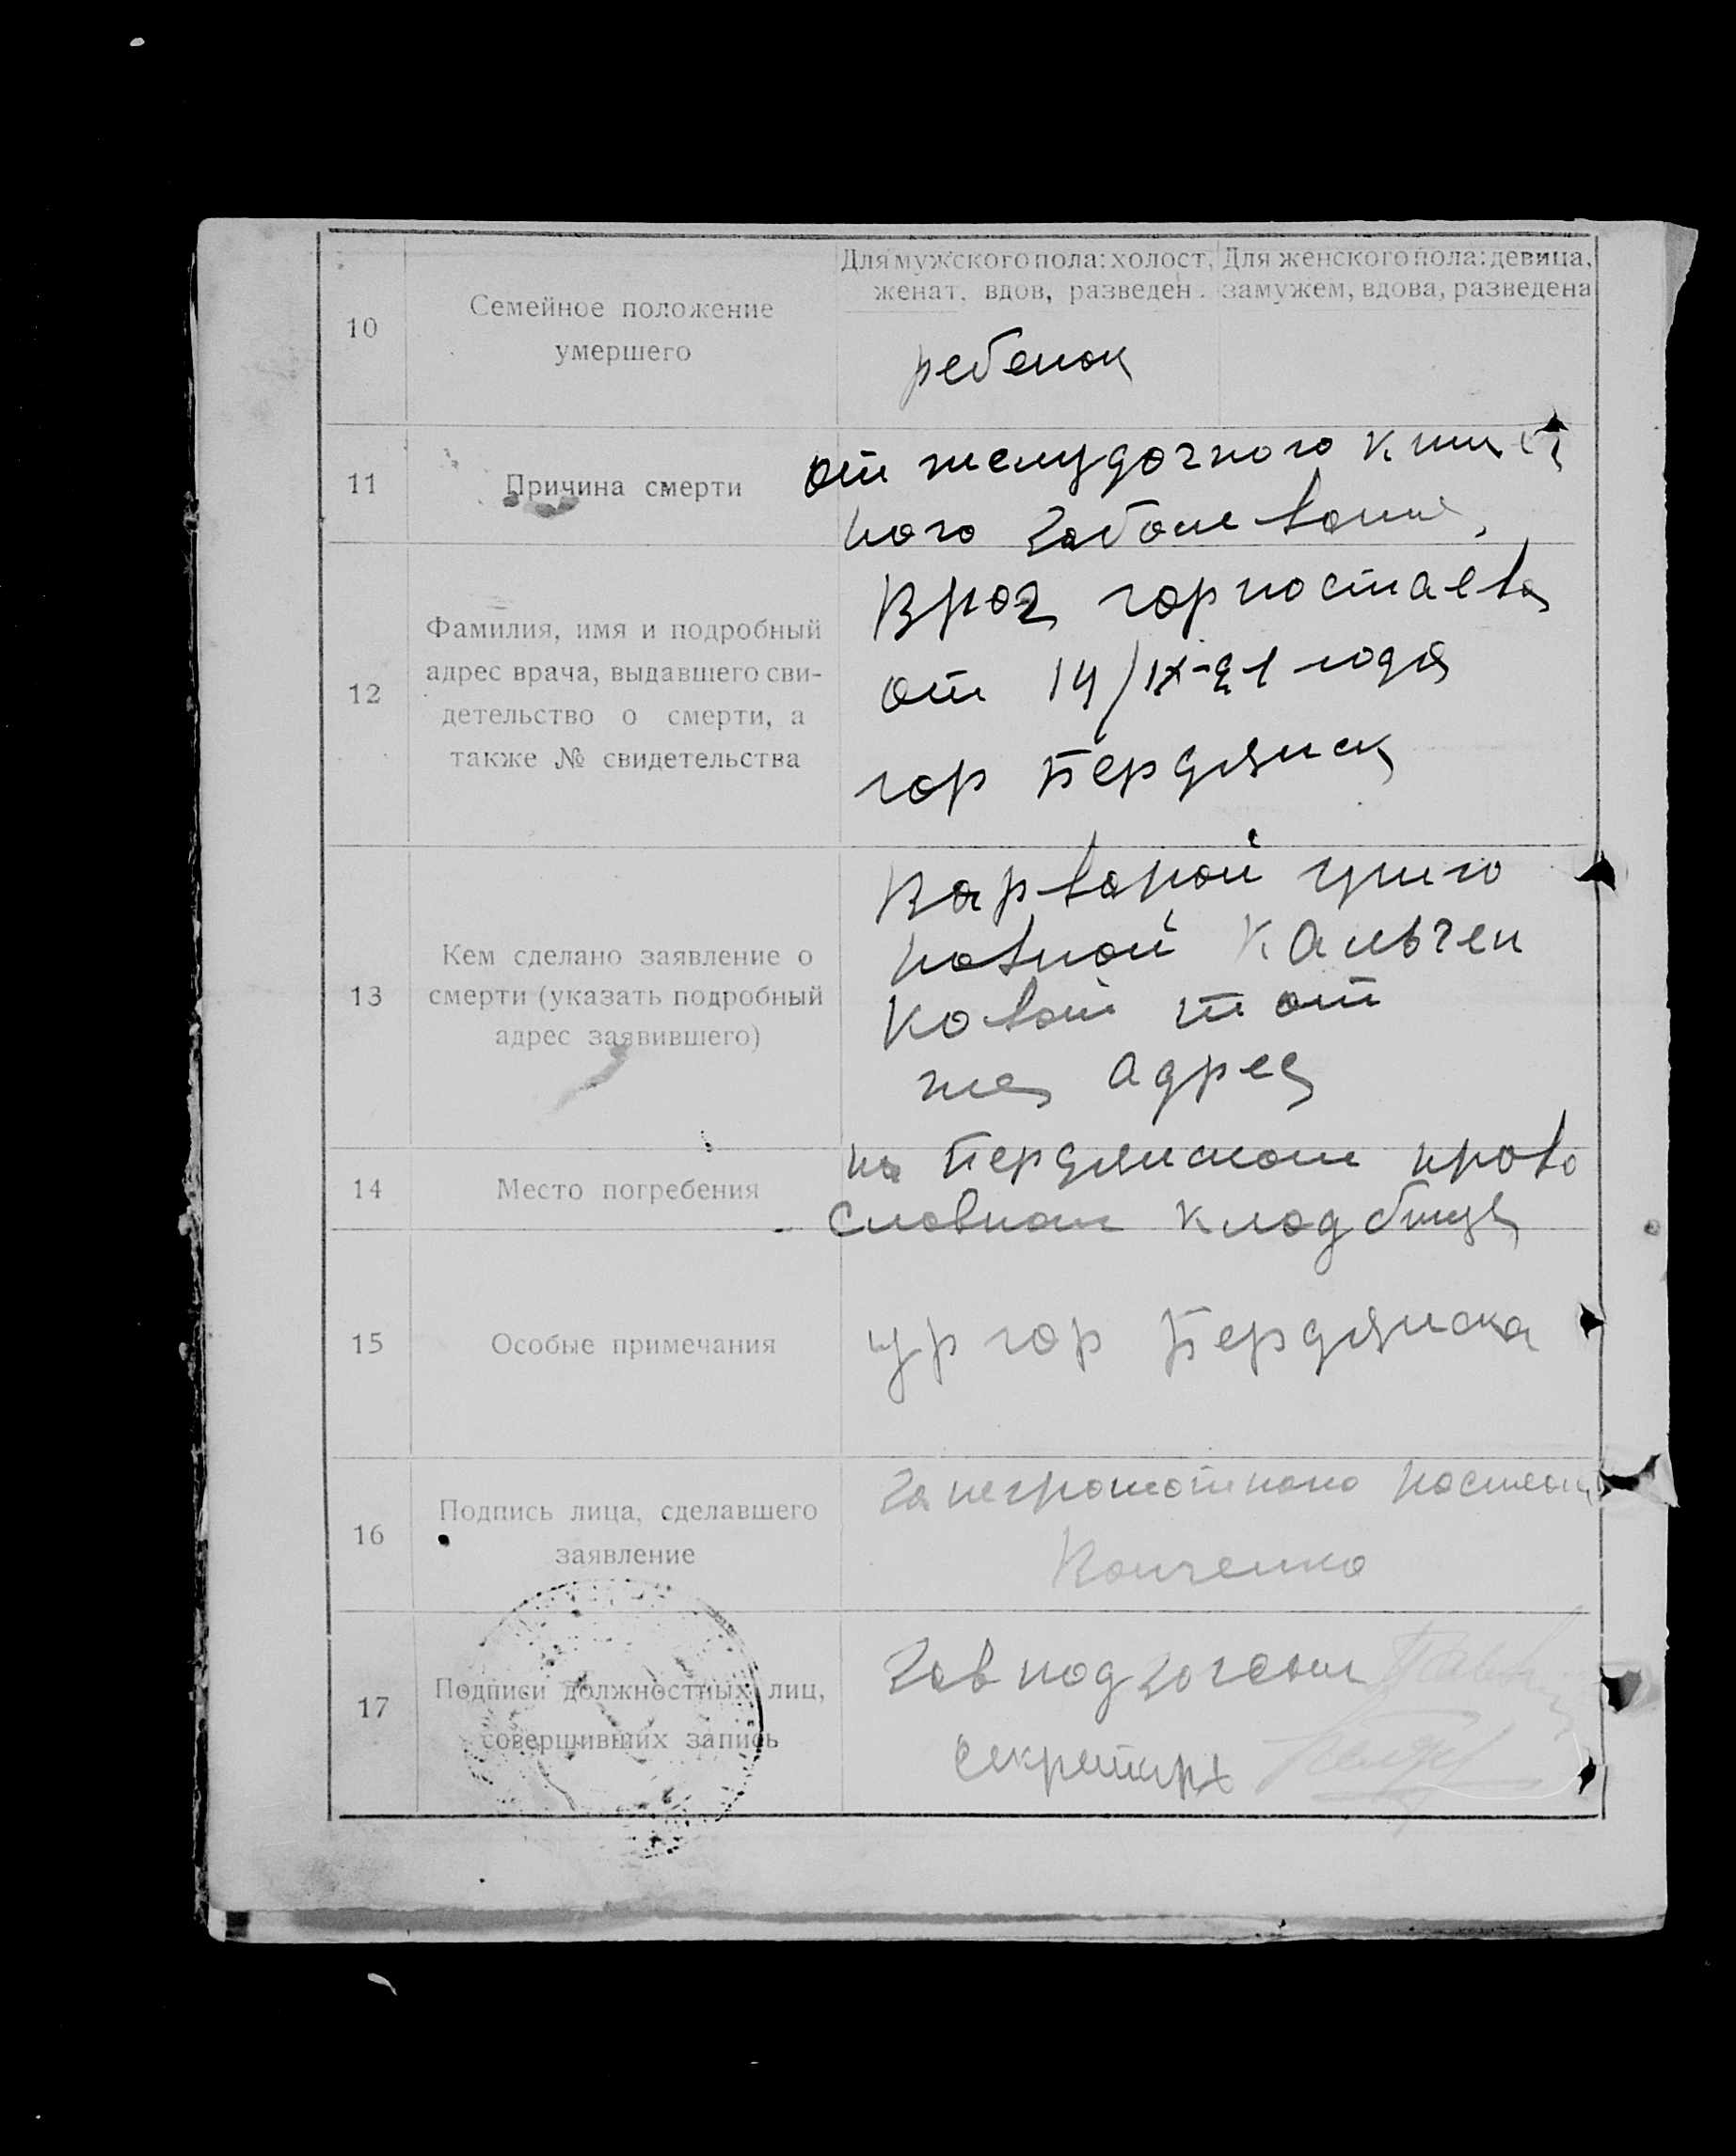 Для мужского пола: холост, женат, вдов, разведен.
Для женского пола: девица, замужем, вдова, разведена
10
Семейное положение
умершего
ребенок
11
Причина смерти
от желудочного кишеч
ного заболевание
12
Фамилия, имя и подробный
адрес врача, выдавшего сви-
детельство о смерти, а
также № свидетельства
Врач горностаева
от 14/IX-21 года
гор Бердянск
13
Кем сделано заявление о
смерти (указать подробный
адрес заявившего)
Варварой григо
ровной Кальчен
ковой тот
же адрес
14
Место погребения
на Бердянском право
славном кладбище
15
Особые примечания
ур гор Бердянска
16
Подпись лица, сделавшего
заявление
за неграмотного
17
Подписи должностных лиц,
совершивших запись
Зав подзагсом
секретарь